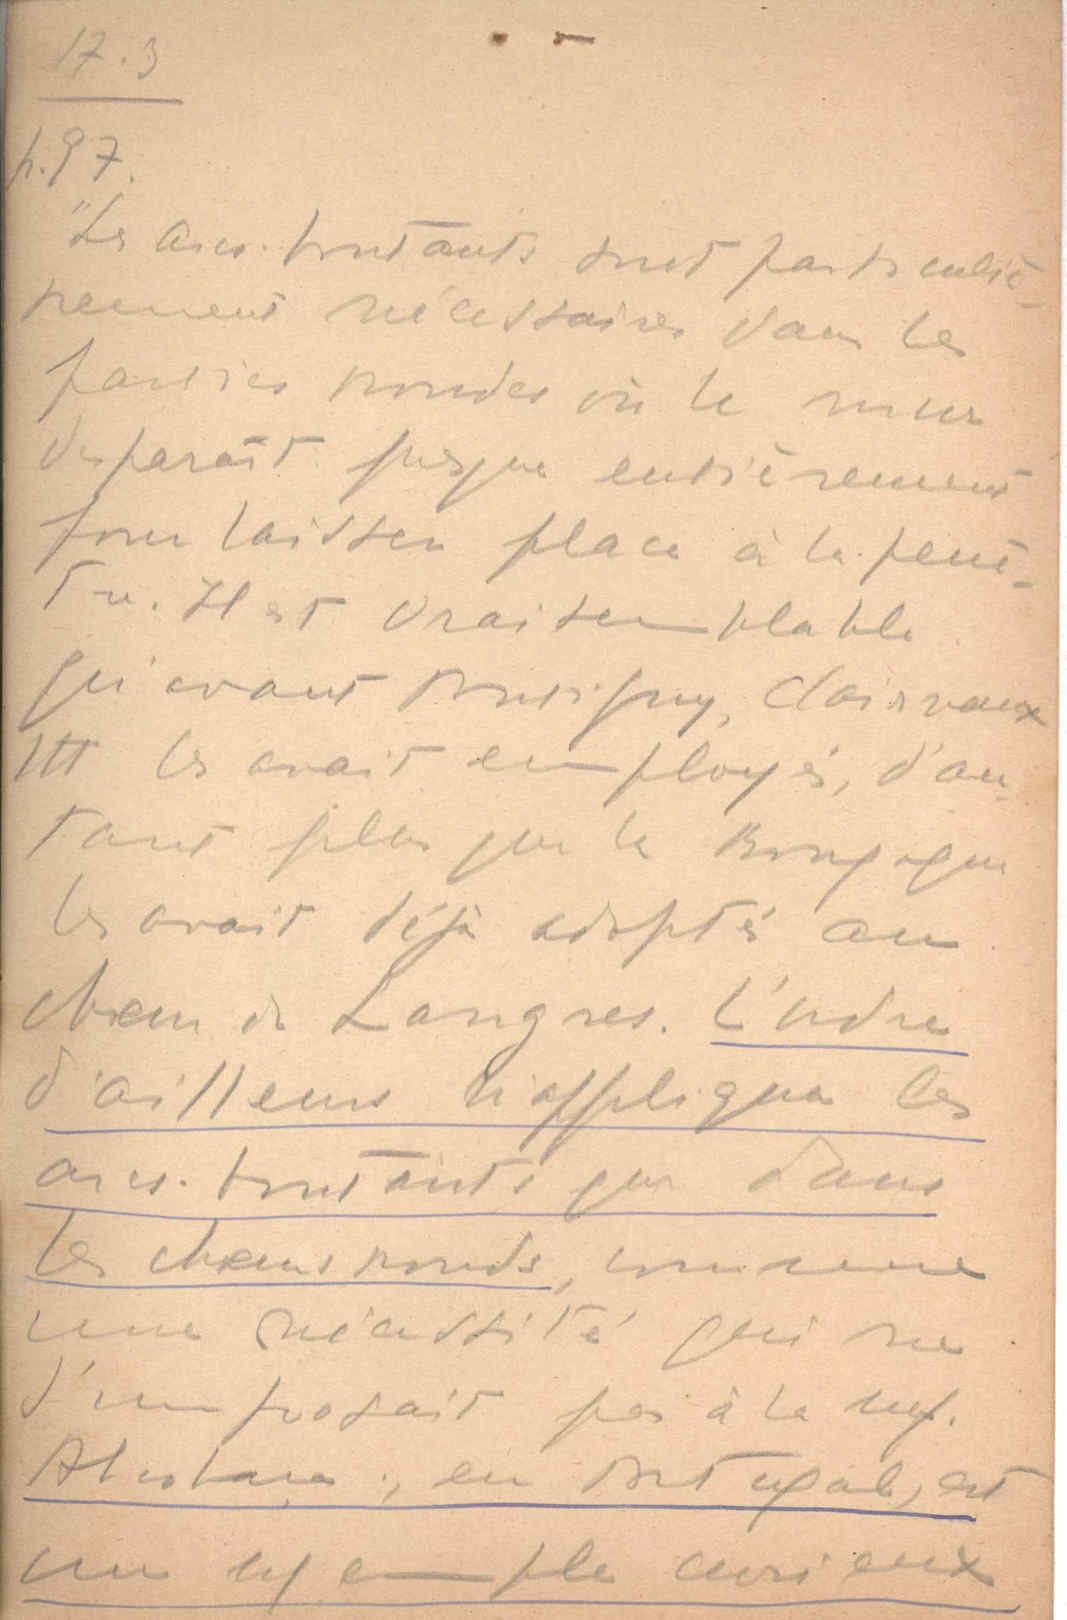 17.3
p.97.
"Les arcs-boutants sont particuliè-
rement nécessaires dans les
parties rondes où le mur
disparaît presque entièrement
pour laisser place à la fenê-
tre. Il est vraisemblable
qu'avant Pontigny, Clairvaux
III les avait employés, d'au-
tant plus que la Bourgogne
les avait déjà adoptés au
chœur de Langres. L'ordre
d'ailleurs n'appliqua les
arcs-boutants que dans
les chœurs ronds, comme
une nécessité qui ne
s'imposait pas à la nef.
Alcobaça, en Portugal, est
un exemple curieux